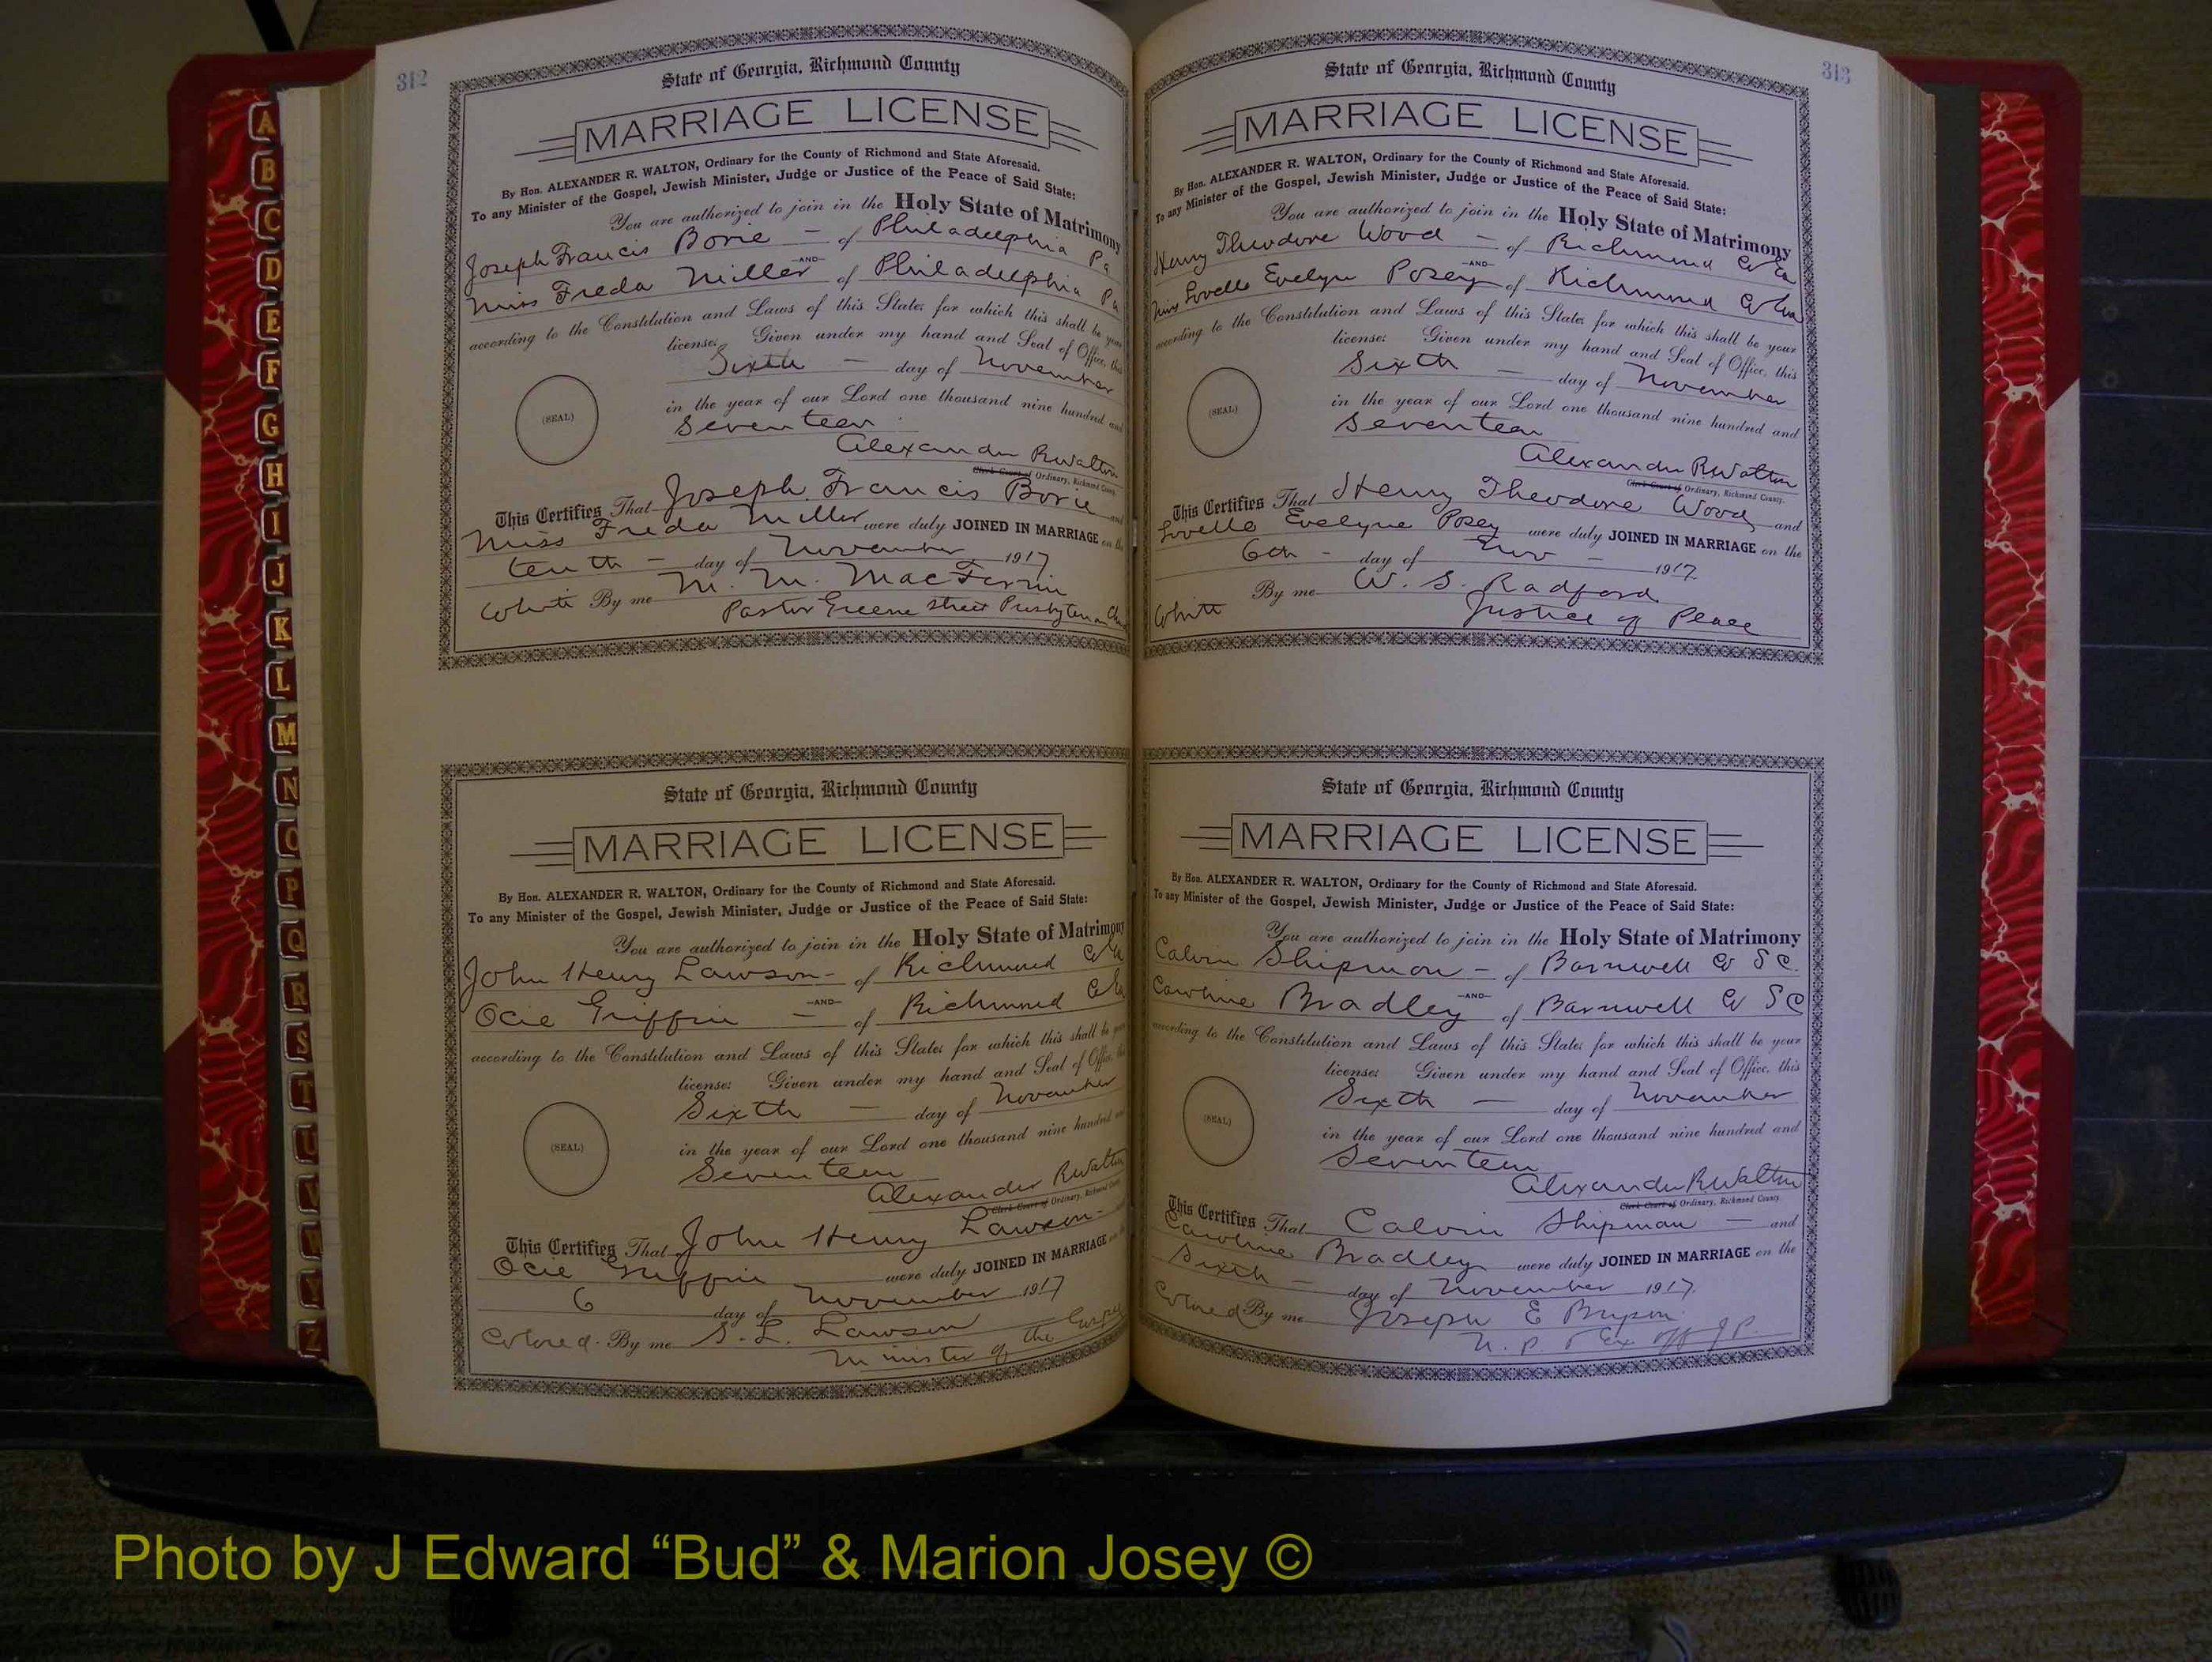 312
State of Georgia, Richmond County
MARRIAGE LICENSE
By Hon. ALEXANDER R. WALTON, Ordinary for the County of Richmond and State Aforesaid.
To any Minister of the Gospel, Jewish Minister, Judge or Justice of the Peace of Said State:
You are authorized to join in the Holy State of Matrimony
Joseph Francis Borie - of Philadelphia Pa
-AND-
Miss Freda Miller of Philadelphia Pa
according to the Constitution and Laws of this State; for which this shall be your
license: Given under my hand and Seal of Office, this
Sixth - day of November
(SEAL)
in the year of our Lord one thousand nine hundred and
Seventeen
Alexander R Walton
Clerk Court of Ordinary, Richmond County.
This Certifies That Joseph Francis Borie and
Miss Freda Miller were duly JOINED IN MARRIAGE on the
tenth - day of November 1917
White By me M. M.
Pastor Greene Street Presbyterian
State of Georgia, Richmond County
MARRIAGE LICENSE
By Hon. ALEXANDER R. WALTON, Ordinary for the County of Richmond and State Aforesaid.
To any Minister of the Gospel, Jewish Minister, Judge or Justice of the Peace of Said State:
You are authorized to join in the Holy State of Matrimony
John Henry Lawson - of Richmond Co Ga
-AND-
Ocie Griffin - of Richmond Co Ga
according to the Constitution and Laws of this State; for which this shall be your
license: Given under my hand and Seal of Office, this
Sixth - day of November
(SEAL)
in the year of our Lord one thousand nine hundred and
Seventeen
Alexander R Walton
Clerk Court of Ordinary, Richmond County.
This Certifies That John Henry Lawson - and
Ocie Griffin were duly JOINED IN MARRIAGE on the
6 day of November 1917
Colored - By me S. L. Lawson
Minister of the Gospel
313
State of Georgia, Richmond County
MARRIAGE LICENSE
By Hon. ALEXANDER R. WALTON, Ordinary for the County of Richmond and State Aforesaid.
To any Minister of the Gospel, Jewish Minister, Judge or Justice of the Peace of Said State:
You are authorized to join in the Holy State of Matrimony
Henry Theodore Wood - of Richmond Co Ga
-AND-
Miss Lovelle Evelyn Posey - of Richmond Co Ga
according to the Constitution and Laws of this State; for which this shall be your
license: Given under my hand and Seal of Office, this
Sixth - day of November
(SEAL)
in the year of our Lord one thousand nine hundred and
Seventeen
Alexander R Walton
Clerk Court of Ordinary, Richmond County.
This Certifies That Henry Theodore Wood and
Lovelle Evelyne Posey were duly JOINED IN MARRIAGE on the
6th - day of Nov - 1917
White By me W. S. Radford
Justice of Peace
State of Georgia, Richmond County
MARRIAGE LICENSE
By Hon. ALEXANDER R. WALTON, Ordinary for the County of Richmond and State Aforesaid.
To any Minister of the Gospel, Jewish Minister, Judge or Justice of the Peace of Said State:
You are authorized to join in the Holy State of Matrimony
Calvin Shipman - of Barnwell Co S C.
-AND-
Caroline Bradley of Barnwell Co S C
according to the Constitution and Laws of this State; for which this shall be your
license: Given under my hand and Seal of Office, this
Sixth - day of November
(SEAL)
in the year of our Lord one thousand nine hundred and
Seventeen
Alexander R Walton
Clerk Court of Ordinary, Richmond County.
This Certifies That Calvin Shipman - and
Caroline Bradley were duly JOINED IN MARRIAGE on the
Sixth - day of November 1917.
Colored By me Joseph E Bryson
N. P. & Ex off J P.
A
B
C
D
E
F
G
H
I
J
K
L
M
N
O
P
Q
R
S
T
U
V
W
Y
Z
Photo by J Edward “Bud” & Marion Josey ©